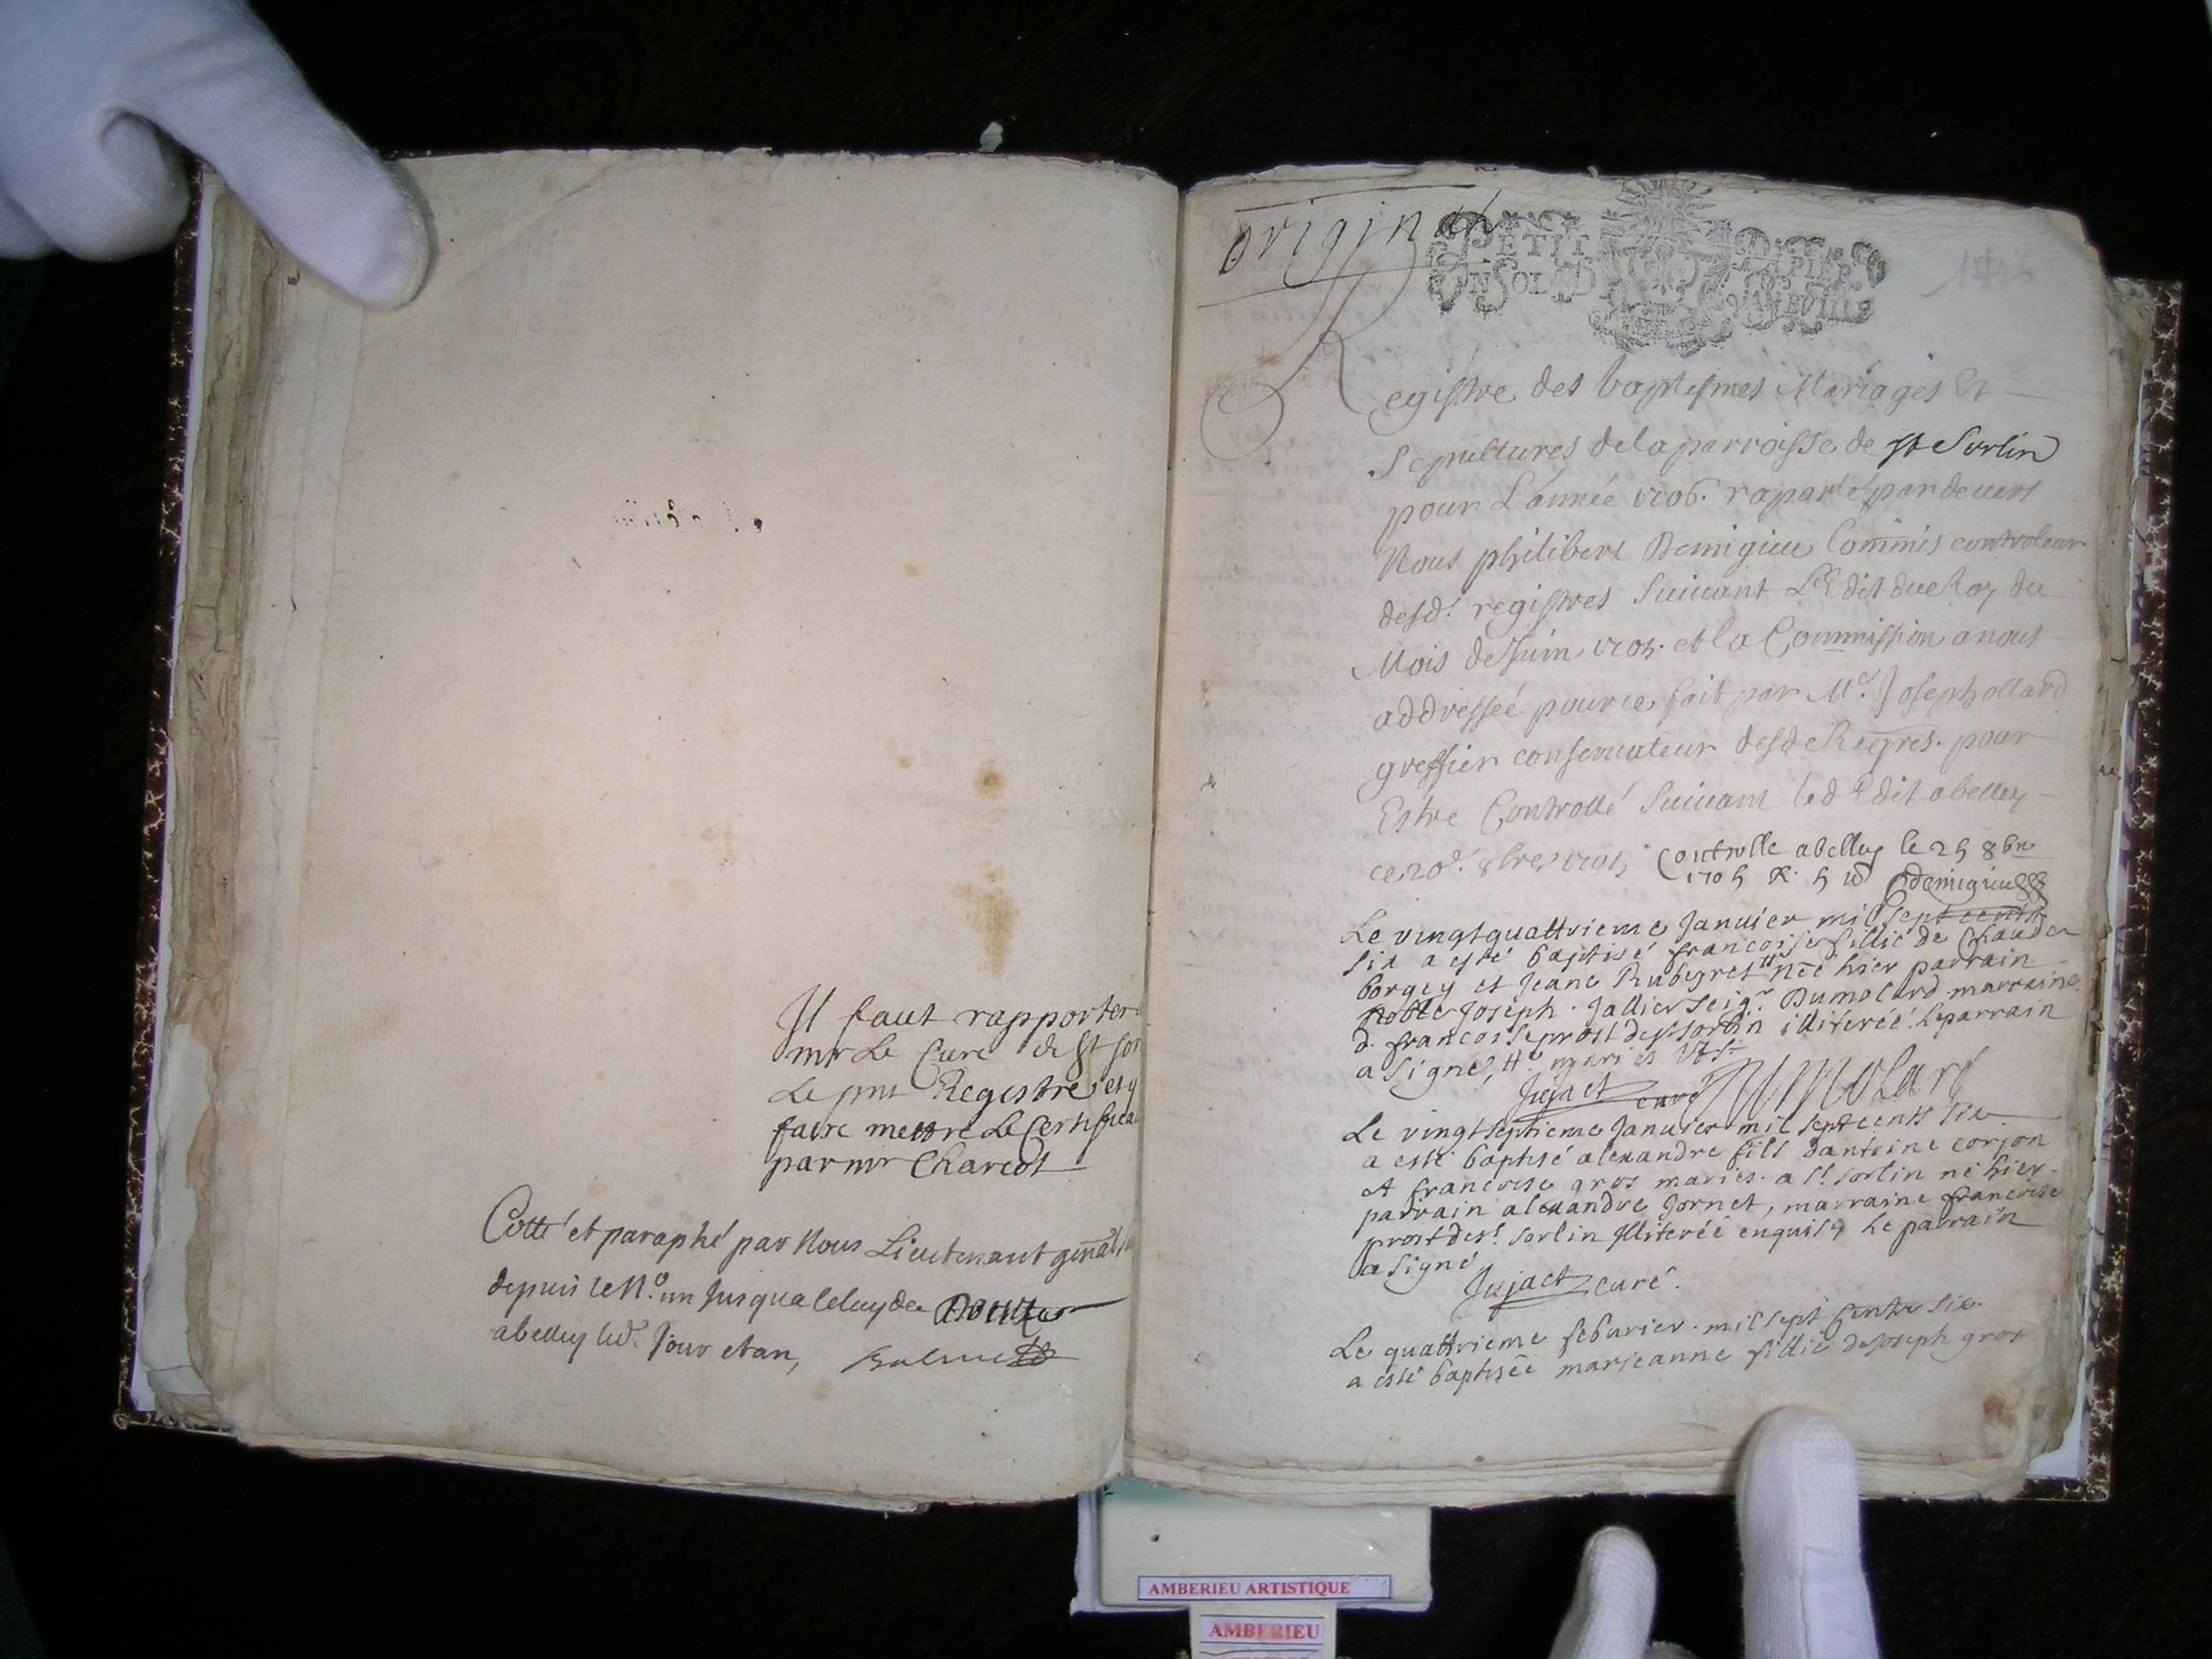 Il faut rapporter
mr Le Curé de St Sor
Le pnt Registre et y
faire mettre Le Certifica
par mr Charcot
Cotté et paraphé par Nous Lieutenant gnãl
depuis le No. un Jusqua celuy de Douze
abelley led. Jour et an,
original
PETIT PAPIER
UN SOL
Registre des baptesmes Mariages Et
Sepultures de la parroisse de St Sorlin
pour L'année 1706. raparté pardevers
Nous philibert Demigieu Commis controleur
desd. registres Suivant L'Edit due Roy du
Mois de Juin 1705. et la Commission a nous
addressée pour ce fait par Me. Joseph ollard
greffier conservateur desd Regres. pour
Estre Controllé Suivant led Edit abelley
ce 20e. 8bre 1705
Controlle abelley le 25 8bre
1705 R. 5 Demigieu
Le vingt quattrieme Janvier mil sept cents
six a esté baptisé francoise fillie de Chauda
borgey et Jeane Rubegret # née hier parrain
noble Joseph Jallier seigr. Dumolard marraine
d. francoise prost de st sorlin illiterée. le parrain
a signé, # mariés
Jujact curé Dumolard
Le vingt septieme Janvier mil sept cents six
a esté baptisé alexandre fils dantoine corjon
et francoise gros mariés. a st sorlin né hier.
parrain alexandre Jornet, marraine francoise
prost de st. sorlin Illiterée enquis & le parrain
a signé
Jujact curé.
Le quattrieme febvrier. mil sept Cents six.
a esté baptisée marieanne fillie de Joseph gros
AMBERIEU ARTISTIQUE
AMBERIEU